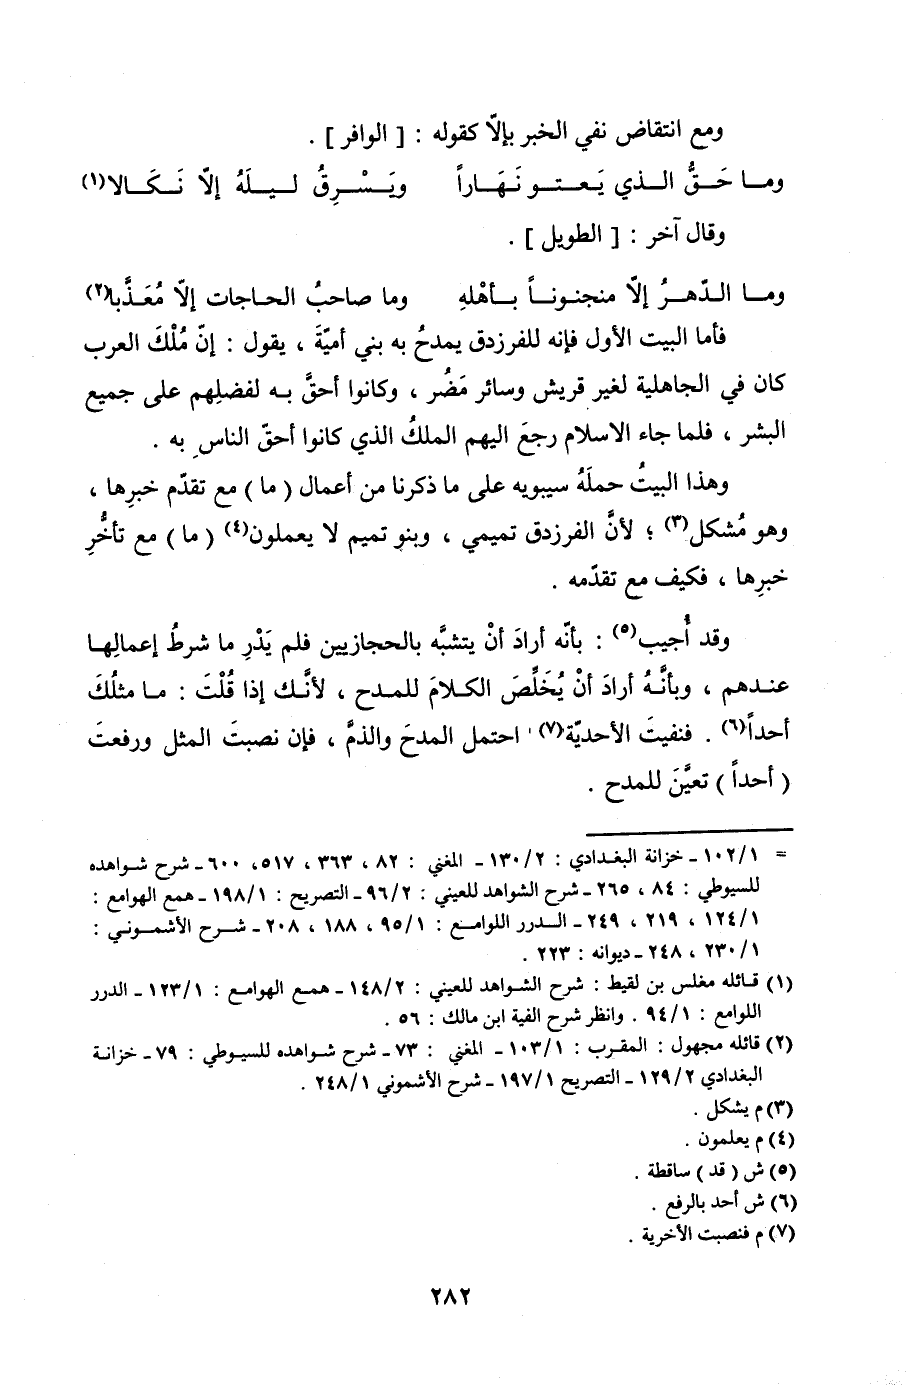 ومع انتقاض نفي الخبر بإلّا كقوله : [ الوافر ] .
وما حَقُّ الذي يَعتو نَهَاراً ويَسْرِقُ ليلَهُ إلّا نَكَالا(١)
وقال آخر : [ الطويل ] .
وما الدّهرُ إلّا منجنوناً بأهْلهِ وما صاحبُ الحاجات إلّا مُعَذَّبا(٢)
فأما البيت الأول فإنه للفرزدق يمدحُ به بني أميّةَ ، يقول : إنّ مُلْكَ العرب
كان في الجاهلية لغير قريش وسائر مَضُر ، وكانوا أحقَّ به لفضلِهم على جميع
البشر ، فلما جاء الاسلام رجعَ اليهم الملكُ الذي كانوا أحقّ الناسِ به .
وهذا البيتُ حملَهُ سيبويه على ما ذكرنا من أعمال ( ما ) مع تقدّم خبرِها ،
وهو مُشكل(٣) ؛ لأنَّ الفرزدق تميمي ، وبنو تميم لا يعملون(٤) ( ما ) مع تأخُّرِ
خبرِها ، فكيف مع تقدّمه .
وقد أُجيب(٥) : بأنّه أرادَ أنْ يتشبَّه بالحجازيين فلم يَدْرِ ما شرطُ إعمالِها
عندهم ، وبأنَّهُ أرادَ أنْ يُخَلِّصَ الكلامَ للمدح ، لأنَّك إذا قُلْتَ : ما مثلُكَ
أحداً(٦) . فنفيتَ الأحديّة(٧) ' احتمل المدحَ والذمَّ ، فإن نصبتَ المثل ورفعتَ
( أحداً ) تعيَّنَ للمدح .
= ١٠٢/١ ـ خزانة البغدادي : ١٣٠/٢ ـ المغني : ٨٢ ، ٣٦٣ ، ٥١٧، ٦٠٠ ـ شرح شواهده
للسيوطي : ٨٤ ، ٢٦٥ ـ شرح الشواهد للعيني : ٩٦/٢ ـ التصريح : ١٩٨/١ ـ همع الهوامع :
١٢٤/١ ، ٢١٩ ، ٢٤٩ ـ الدرر اللوامع : ٩٥/١ ، ١٨٨ ، ٢٠٨ ـ شرح الأشموني :
٢٣٠/١ ، ٢٤٨ ـ ديوانه : ٢٢٣ .
(١) قائله مغلس بن لقيط : شرح الشواهد للعيني : ١٤٨/٢ ـ همع الهوامع : ١٢٣/١ ـ الدرر
اللوامع : ٩٤/١ . وانظر شرح الفية ابن مالك : ٥٦ .
(٢) قائله مجهول : المقرب : ١٠٣/١ ـ المغني : ٧٣ ـ شرح شواهده للسيوطي : ٧٩ ـ خزانة
البغدادي ١٢٩/٢ ـ التصريح ١٩٧/١ ـ شرح الأشموني ٢٤٨/١ .
(٣) م يشكل .
(٤) م يعلمون .
(٥) ش ( قد ) ساقطة .
(٦) ش أحد بالرفع .
(٧) م فنصبت الأخرية .
٢٨٢